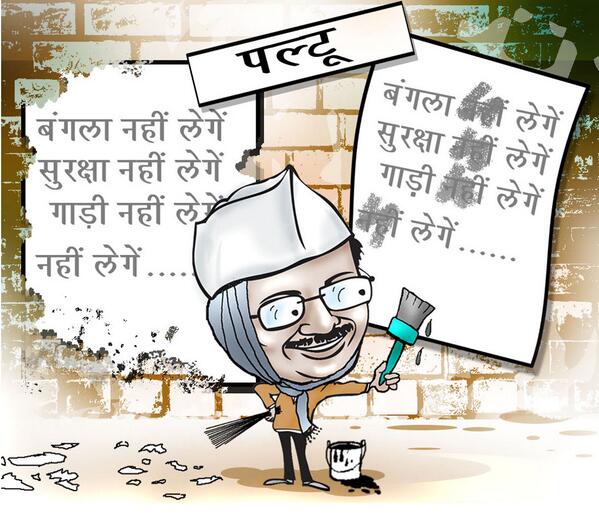 पल्टू
बंगला नहीं लेगें
सुरक्षा नहीं लेगें
गाड़ी नहीं लेगें
नहीं लेगें.....
बंगला नहीं लेगें
सुरक्षा नहीं लेगें
गाड़ी नहीं लेगें
नहीं लेगें......